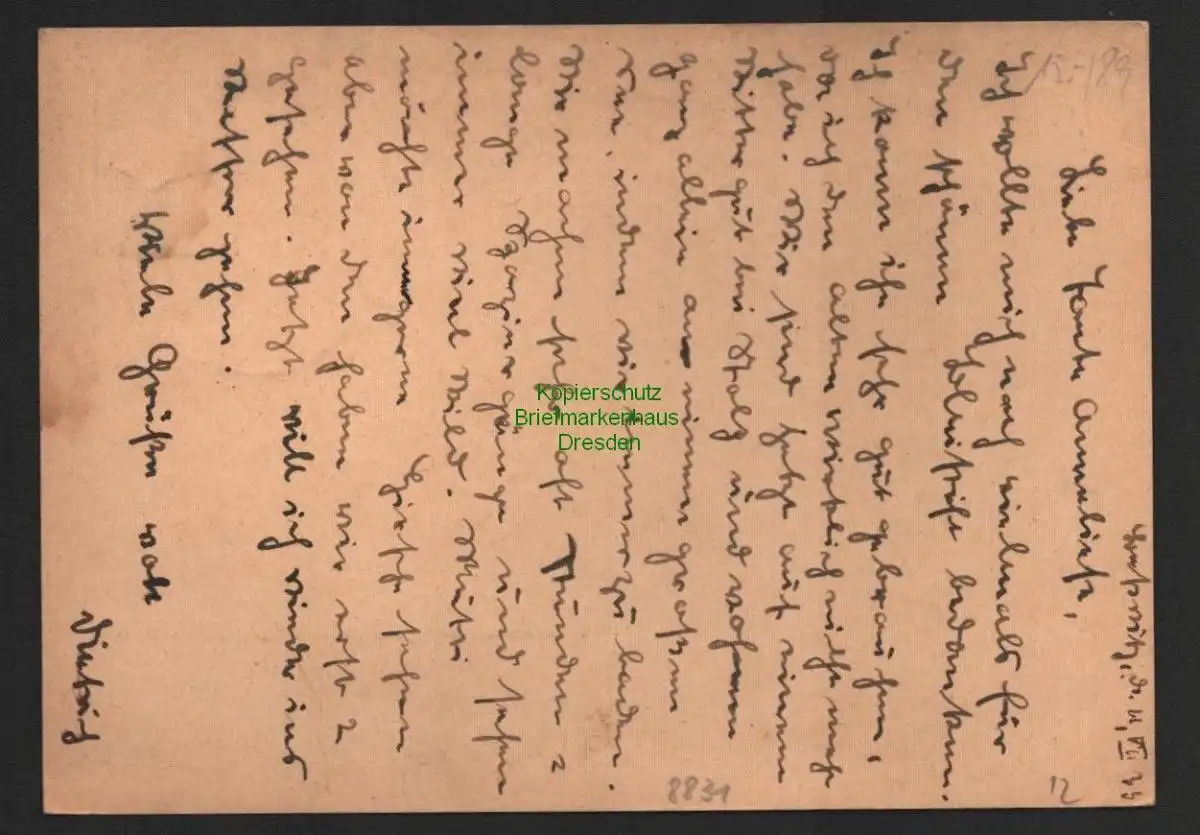 d. 11. VII 39
Liebe Tante Annelise,
Ich wollte mich noch vielmals für
den schönen Bleistift bedanken.
Ich kann ihn sehr gut gebrauchen,
da ich den alten wirklich nicht mehr
habe. Wir sind jetzt auf einem
Rittergut bei Stolp und wohnen
ganz allein an einem großen
See, in dem wir immerzu baden.
Wir machen sehr oft 2 Stunden
lange Spaziergänge und sehen
immer viel Wild. Mutti
möchte immer gern Hirsche sehen
aber von den haben wir erst 2
gesehen. Jetzt will ich wieder ins
Wasser gehen.
Viele Grüße von
Dietrich
8831
12
Kopierschutz
Briefmarkenhaus
Dresden